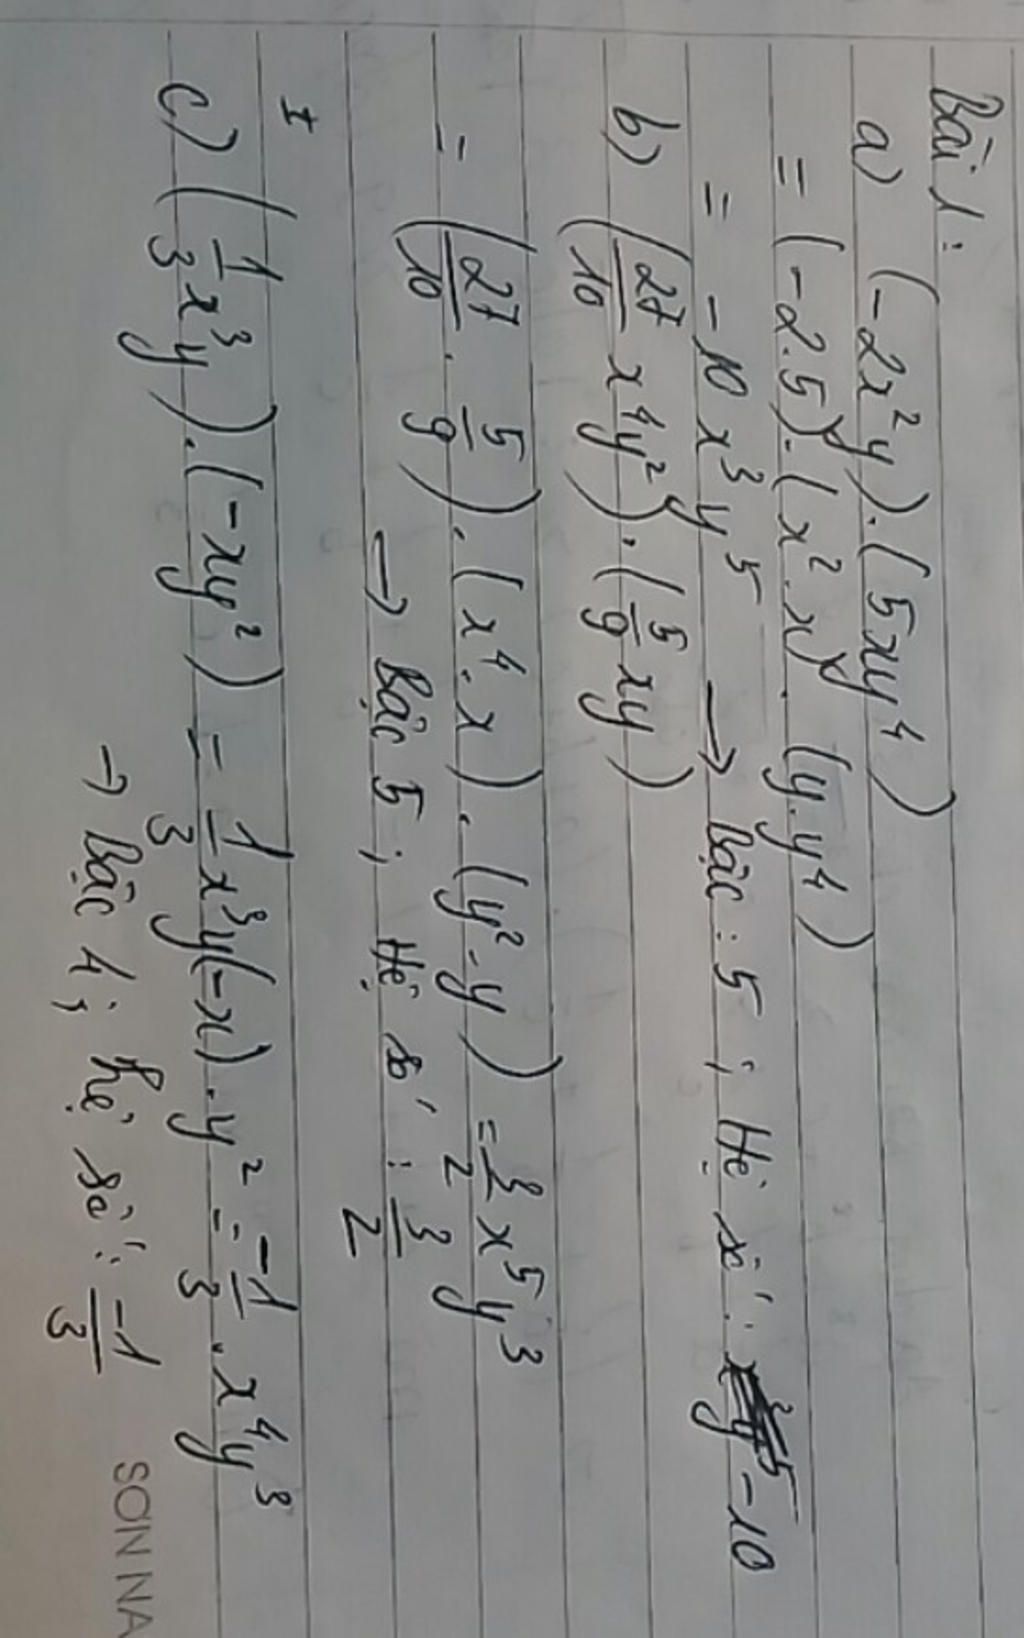 Bài 1:
a) (-2x²y).(5xy⁴)
= (-2.5).(x².x).(y.y⁴)
= -10x³y⁵ → Bậc: 5; Hệ số: -10
b) (27/10 x⁴y²).(5/9 xy)
= (27/10 . 5/9).(x⁴.x).(y².y) = 3/2 x⁵y³
→ Bậc 5; Hệ số: 3/2
c) (1/3 x³y).(-xy²) = 1/3 x³y(-x).y² = -1/3 . x⁴y³
→ Bậc 4; hệ số: -1/3
SƠN NA